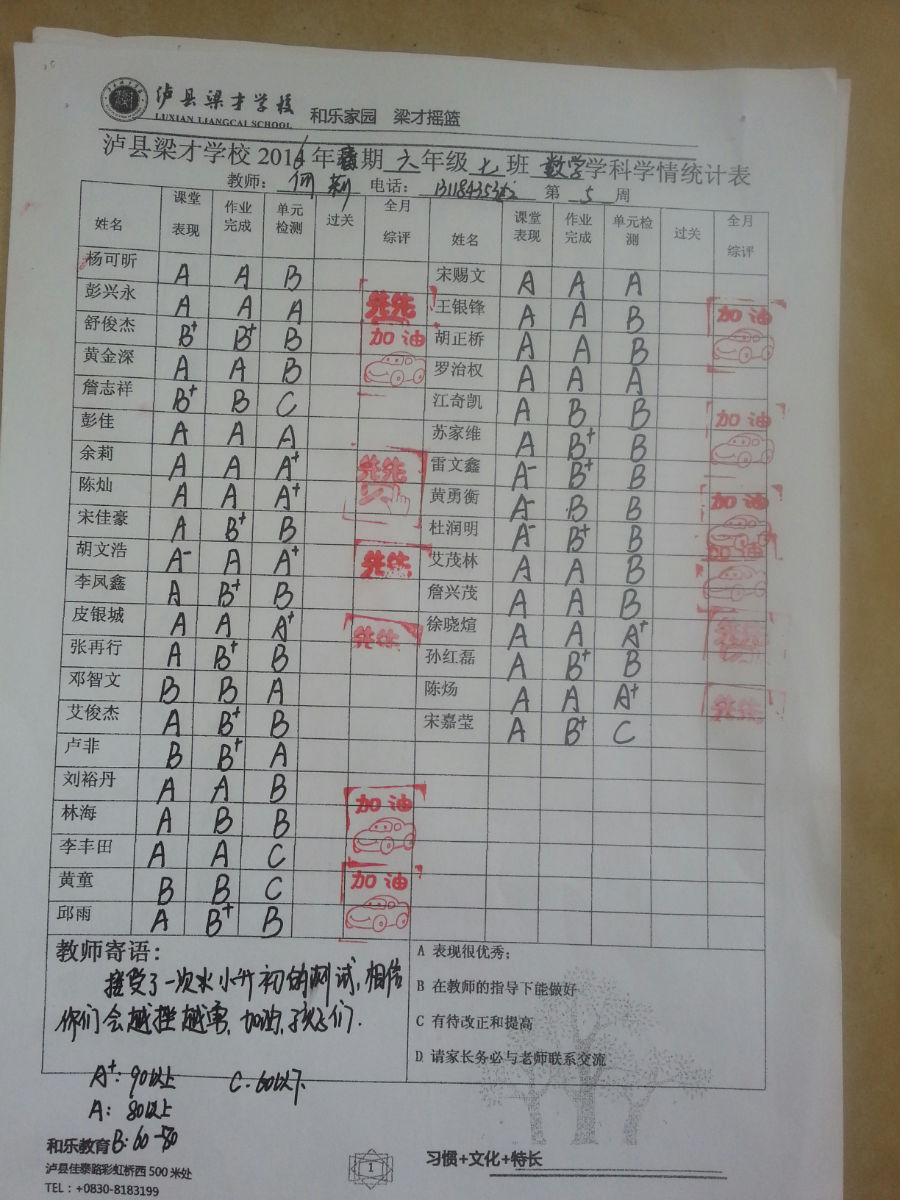 泸县梁才学校 和乐家园 梁才摇篮
LUXIAN LIANGCAI SCHOOL
泸县梁才学校 2016年春期 六年级 七班 数学学科学情统计表
教师： 何莉 电话： 第 5 周
姓名 课堂表现 作业完成 单元检测 过关 全月综评 姓名 课堂表现 作业完成 单元检测 过关 全月综评
杨可昕 A A B 宋赐文 A A A
彭兴永 A A A 王银锋 A A B 加油
舒俊杰 B+ B+ B 加油 胡正桥 A A B
黄金深 A A B 罗治权 A A A
詹志祥 B+ B C 江奇凯 A B B 加油
彭佳 A A A 苏家维 A B+ B
余莉 A A A+ 雷文鑫 A- B+ B
陈灿 A A A+ 黄勇衡 A- B B 加油
宋佳豪 A B+ B 杜润明 A- B+ B 加油
胡文浩 A- A A+ 艾茂林 A A B
李凤鑫 A B+ B 詹兴茂 A A B
皮银城 A A A+ 徐晓煊 A A A+
张再行 A B+ B 孙红磊 A B+ B
邓智文 B B A 陈炀 A A A+
艾俊杰 A B+ B 宋嘉莹 A B+ C
卢非 B B+ A
刘裕丹 A A B 加油
林海 A B B
李丰田 A A C
黄童 B B C 加油
邱雨 A B+ B
教师寄语：
接受了一次水小升初的测试，相信
你们会越挫越勇，加油，孩子们．
A 表现很优秀；
B 在教师的指导下能做好
C 有待改正和提高
D 请家长务必与老师联系交流
A+：90以上 C：60以下
A：80以上
B：60-80
和乐教育
泸县佳泰路彩虹桥西500米处
TEL：+0830-8183199
1
习惯+文化+特长